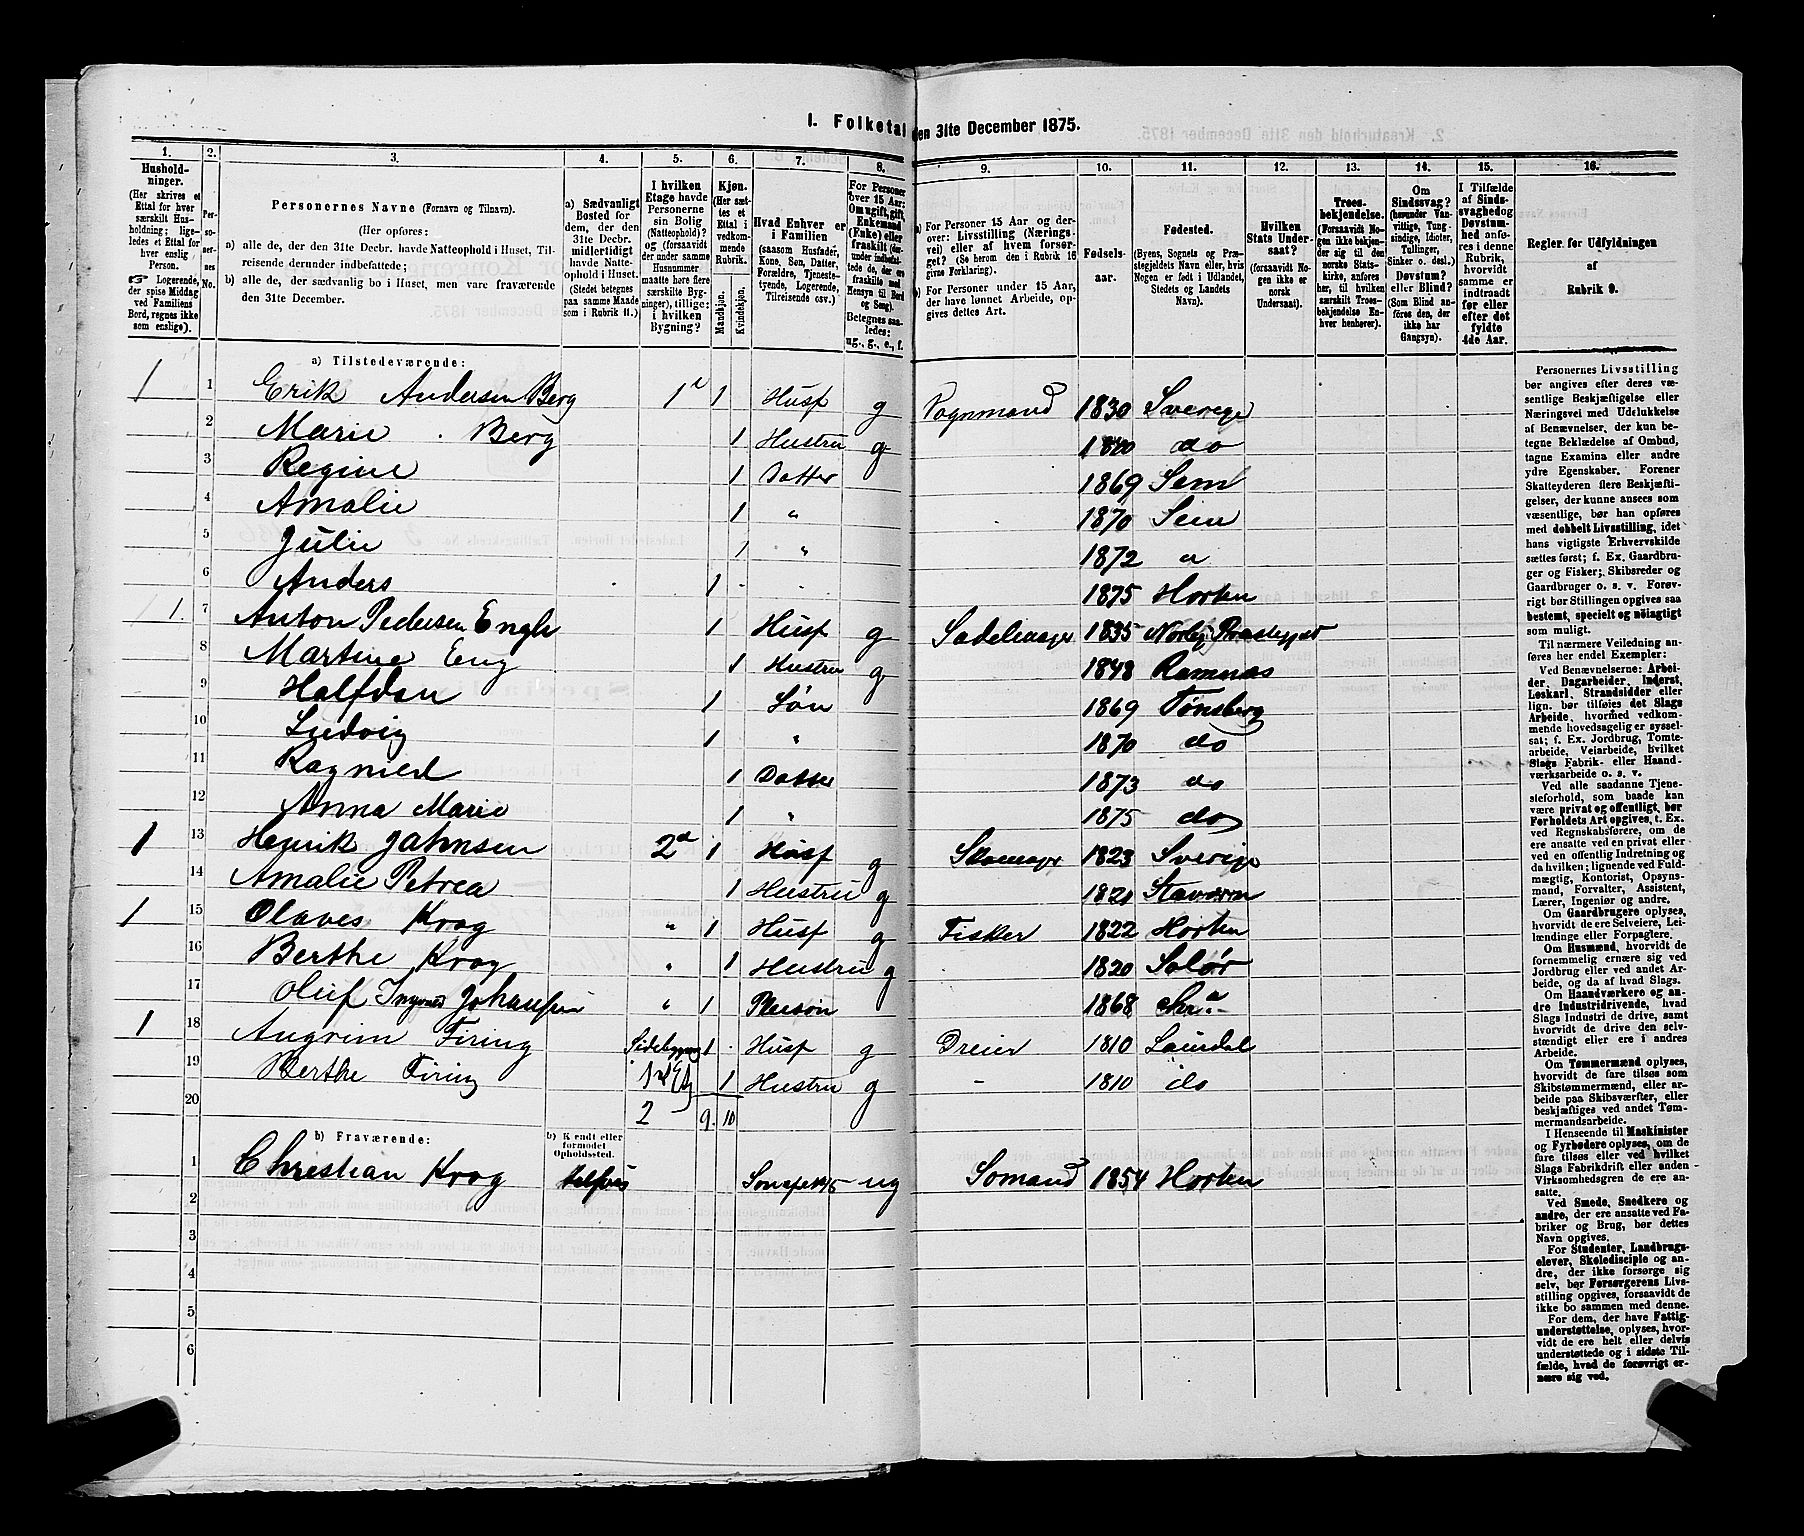 1. Folketal den 31te December 1875.
1. 2. 3. 4. 5. 6. 7. 8. 9. 10. 11. 12. 13. 14. 15. 16.
Husholdninger.
(Her skrives et Ettal for hver særskilt Husholdning; ligeledes et Ettal for hver enslig Person.
☞ Logerende, der spise Middag ved Familiens Bord, regnes ikke som enslige).
Personernes No.
Personernes Navne (Fornavn og Tilnavn).
(Her opføres:
a) alle de, der den 31te Decbr. havde Natteophold i Huset, Tilreisende derunder indbefattede;
b) alle de, der sædvanlig bo i Huset, men vare fraværende den 31te December.
a) Sædvanligt Bosted for dem, der den 31te Decbr. midlertidigt havde Natteophold i Huset. (Stedet betegnes paa samme Maade som i Rubrik 11.)
I hvilken Etage havde Personerne sin Bolig (Natteophold)? og (forsaavidt der under samme Husnummer maatte høre flere særskilte Bygninger), tillige: i hvilken Bygning?
Kjøn. (Her sættes et Ettal i vedkommende Rubrik.
Mandkjøn. Kvindekjøn.
Hvad Enhver er i Familien
(saasom Husfader, Kone, Søn, Datter, Forældre, Tjenestetyende, Logerende, Tilreisende osv.)
For Personer over 15 Aar: Om ugift, gift, Enkemand (Enke) eller fraskilt
Betegnes saaledes: ug., g., e., f.
a) For Personer 15 Aar og derover: Livsstilling (Næringsvei) eller af hvem forsørget? (Se herom den i Rubrik 16 givne Forklaring).
b) For Personer under 15 Aar, der have lønnet Arbeide, opgives dettes Art.
Fødselsaar.
Fødested.
(Byens, Sognets og Præstegjeldets Navn, eller, hvis Nogen er født i Udlandet, Stedets og Landets Navn).
Hvilken Stats Undersaat?
(forsaavidt Nogen ikke er norsk Undersaat).
Troesbekjendelse. (Forsaavidt Nogen ikke bekjender sig til den norske Statskirke, anføres her, til hvilken særskilt Troesbekjendelse Enhver henhører).
Om Sindssvag? (herunder Vanvittige, Tungsindige, Idioter, Tullinger, Sinker o. desl.) Døvstum? eller Blind? (Som Blind anføres den, der ikke har Gangsyn).
I Tilfælde af Sindssvaghed og Døvstumhed anføres i denne Rubrik, hvorvidt samme er indtraadt før eller efter det fyldte 4de Aar.
Regler for Udfyldningen af Rubrik 9.
a) Tilstedeværende:
1 1 Erik Andersen Berg 1 1 Husf g Vognmand 1830 Sverige
2 Marie Berg 1 Hustru g 1840 do
3 Regine 1 Datter 1869 Sem
4 Amalie 1 " 1870 Sem
5 Julie 1 " 1872 "
6 Anders 1 1875 Horten
1 7 Anton Pedersen 1 Husf g Sadelmager 1835
8 Martine Eng 1 Hustru g 1848 Ramnæs
9 Halfdan 1 Søn 1869 Tønsberg
10 Ludvig 1 " 1870 do
11 Ragnild 1 Datter 1873 do
12 Anna Marie 1 " 1875 do
1 13 Henrik Jahnsen 2 1 Husf g Skomager 1823 Sverige
14 Amalie Petrea 1 Hustru g 1820 Staværn
1 15 Olaves Krog " 1 Husf g Fisker 1822 Horten
16 Berthe Krog " 1 Hustru g 1820 Solør
17 Oluf Johansen " 1 Pleiesøn 1868 Chr.a
1 18 Angrim Firing Sidebygn 1 Husf g Dreier 1810
19 Berthe Firing 1 Hustru g 1810 do
20 2 9 10
b) Fraværende:
b) Kjendt eller formodet Opholdssted.
1 Christian Krog ug Sømand 1854 Horten
2
3
4
5
6
Personernes Livsstilling bør angives efter deres væsentlige Beskjæftigelse eller Næringsvei med Udelukkelse af Benævnelser, der kun betegne Beklædelse af Ombud, tagne Examina eller andre ydre Egenskaber. Forener Skatteyderen flere Beskjæftigelser, der kunne ansees som væsentlige, bør han opføres med dobbelt Livsstilling, idet hans vigtigste Erhvervskilde sættes først; f. Ex. Gaardbruger og Fisker; Skibsreder og Gaardbruger o. s. v. Forøvrigt bør Stillingen opgives saa bestemt, specielt og nøiagtigt som muligt.
Til nærmere Veiledning anføres her endel Exempler:
Ved Benævnelserne: Arbeider, Dagarbeider, Inderst, Løskarl, Strandsidder eller lign. bør tilføies det Slags Arbeide, hvormed vedkommende hovedsagelig er sysselsat; f. Ex. Jordbrug, Tomtearbeide, Veiarbeide, hvilket Slags Fabrik- eller Haandværksarbeide o. s. v.
Ved alle saadanne Tjenesteforhold, som baade kan være privat og offentligt, bør Forholdets Art opgives, t. Ex. ved Regnskabsførere, om de ere ansatte ved en privat eller ved en offentlig Indretning og da hvilken; lignende ved Fuldmægtig, Kontorist, Opsynsmand, Forvalter, Assistent, Lærer, Ingeniør og andre.
Om Gaardbrugere oplyses, hvorvidt de ere Selveiere, Leilændinge eller Forpagtere.
Om Husmænd, hvorvidt de fornemmelig ernære sig ved Jordbrug eller ved andet Arbeide, og da af hvad Slags.
Om Haandværkere og andre Industridrivende, hvad Slags Industri de drive, samt hvorvidt de drive den selvstændigt eller ere i andres Arbeide.
Om Tømmermænd oplyses, hvorvidt de fare tilsøs som Skibstømmermænd, eller arbeide paa Skibsværfter, eller beskjæftiges ved andet Tømmermandsarbeide.
I Henseende til Maskinister og Fyrbødere oplyses, om de fare tilsøs eller ved hvilket Slags Fabrikdrift eller anden Virksomhed de ere ansatte.
Ved Smede, Snedkere og andre, der ere ansatte ved Fabriker og Brug, bør dettes Navn opgives.
For Studenter, Landbrugselever, Skoledisciple og andre, der ikke forsørge sig selv, bør Forsørgerens Livsstilling opgives, forsaavidt de ikke bo sammen med denne.
For dem, der have Fattigunderstøttelse, oplyses, hvorvidt de ere helt eller delvis understøttede og i sidste Tilfælde, hvad de forøvrigt ernære sig ved.